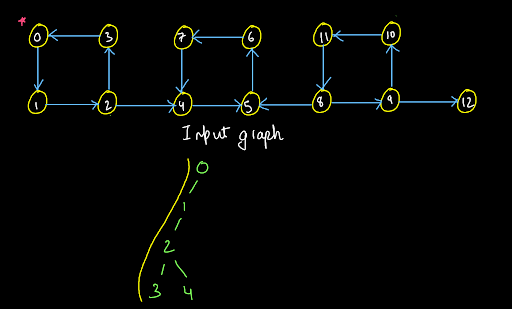 *
0 3 7 6 11 10
1 2 4 5 8 9 12
Input graph
0
1
2
3 4